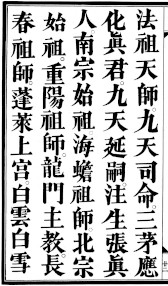 法祖天師九天司命。三茅應
化眞君九天延嗣注生張眞
人。南宗始祖。海蟾祖師。北宗
始祖。重陽祖師。龍門主教。長
春祖師蓬萊上宮。白雲白雪